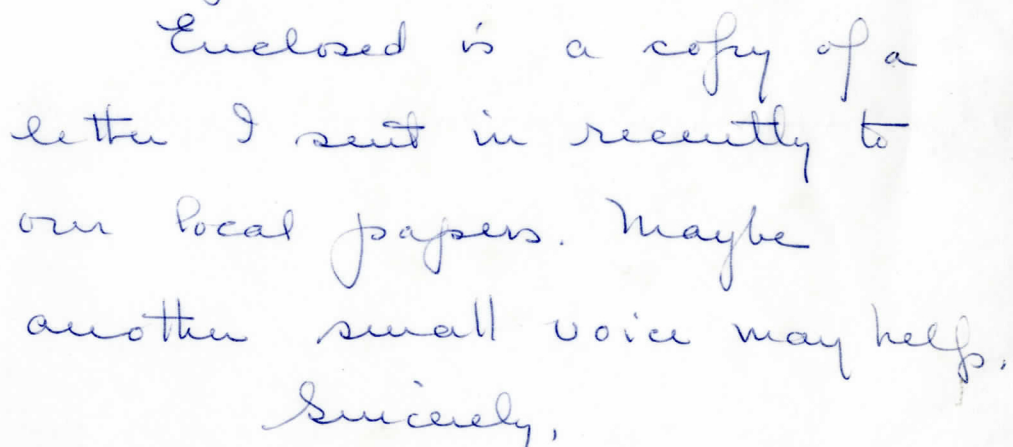 Enclosed is a copy of a
letter I sent in recently to
our local papers. Maybe
another small voice may help.
Sincerely,